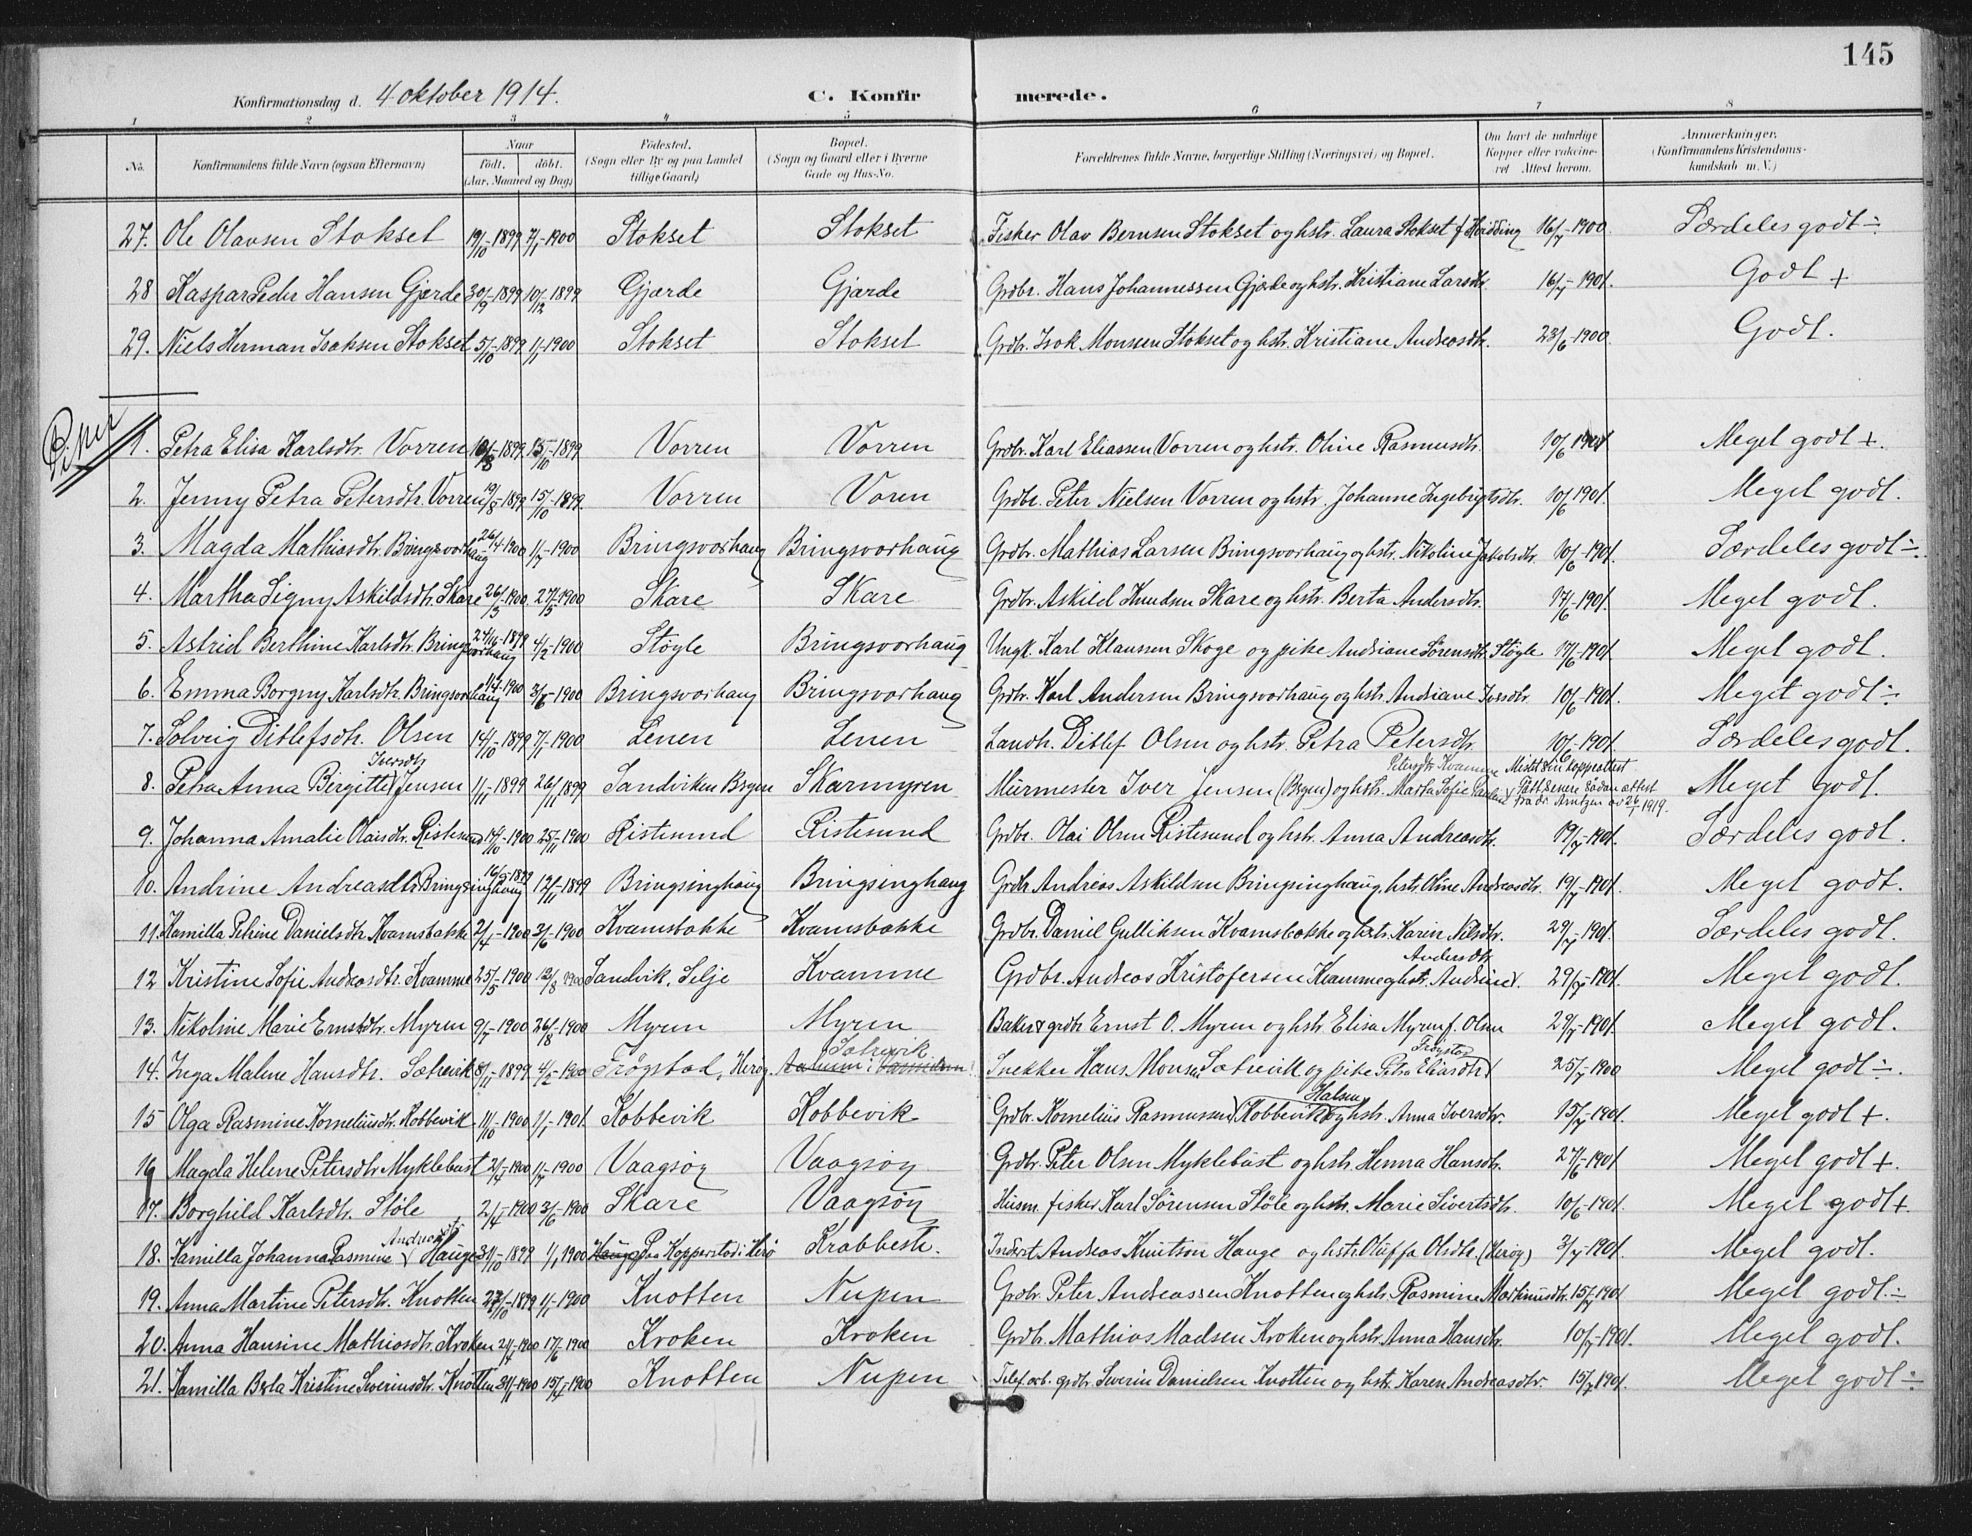 145
Konfirmationsdag d. 4 oktober 1914. C. Konfir merede.
1 2 3 4 5 6 7 8
No. Konfirmandens fulde Navn (ogsaa Efternavn) Naar Födt. döbt. (Aar, Maaned og Dag) Födested. (Sogn eller By og paa Landet tillige Gaard) Bopæl. (Sogn og Gaard eller i Byerne Gade og Hus-No. Forældrenes fulde Navne, borgerlige Stilling (Næringsvei) og Bopæl. Om havt de naturlige Kopper eller vaccineret Attest herom. Anmærkninger. (Konfirmandens Kristendomskundskab m. V.)
27. Ole Olavsen Stokset 19/10-1899 7/1-1900 Stokset Stokset Fisker Olav Bernsen Stokset og hstr. Laura Stokset f. 16/7-1900 Særdeles godt ÷
28 Kaspar Peder Hansen Gjærde 30/9-1899 10/12-1899 Gjærde Gjærde Grdbr. Hans Johannessen Gjærde og hstr. Kristiane Larsdtr. 16/7-1901. Godt +
29. Niels Herman Isaksen Stokset 5/10-1899 1/1-1900 Stokset Stokset Grdbr. Isak Monssen Stokset og hstr. Kristiane Andreasdtr. 23/6-1900. Godt.
Piker
1. Petra Elisa Karlsdtr. Vorren 1899 15/10-1899 Vorren Vorren Grdbr. Karl Eliassen Vorren og hstr. Oline Rasmusdtr. 10/6 1901 Meget godt +.
2. Jenny Petra Petersdtr. Vorren 19/8-1899 15/10-1899. Vorren Voren Grdbr. Peter Nielsen Vorren og hstr. Johanne Ingebrigtsdtr. 10/6 1901. Meget godt.
3. Magda Mathiasdtr. Bringsvorhaug 26/4-1900 1/7-1900 Bringsvorhaug Bringsvorhaug Grdbr. Mathias Larsen Bringsvorhaug og hstr. Nikoline Jakobsdtr. 10/6-1901. Særdeles godt ÷.
4. Martha Signy Askildsdtr. Skare 26/3-1900. 27/5-1900 Skare Skare Grdbr. Askild Knudsen Skare og hstr. Berta Andersdtr. 17/6-1901. Meget godt.
5. Astrid Berthine Karlsdtr. Bringsvorhaug 1899 4/2-1900 Støyle Bringsvorhaug Ungk. Karl Klaussen Skoge og pike Andriane Sørensdtr. Støyle 17/6-1901. Meget godt.
6. Emma Borgny Karlsdtr. Bringsvorhaug 1/4-1900 3/6-1900 Bringsvorhaug Bringsvorhaug Grdbr. Karl Andersen Bringsvorhaug og hstr. Andriane Iversdtr. 10/6-1901. Meget godt ÷
7. Solveig Ditlefsdtr. Olsen 14/10-1899 7/1-1900 Lenen Lenen Landh. Ditlef Olsen og hstr. Petra Petersdtr. 10/7-1901. Særdeles godt.
Iversdtr Petersdtr Kvamme Mistet sin koppeattest
8. Petra Anna Bergitte Jensen 1/1-1899 26/11-1899 Sandviken Bergen Skarmyren Mürmester Iver Jensen (Bergen) og hstr. Marta Sofie Fått senere sådan attest Meget godt.
fra dr. Arntzen av 26/ 1919.
9. Johanna Amalie Olaisdtr. Ristesund 14/10-1900 25/11-1900 Ristesund Ristesund Grdbr. Olai Olsen Ristesund og hstr. Anna Andreasdtr. 19/7-1901. Særdeles godt.
10. Andrine Andreasdtr. Bringsinghaug 16/9-1899 12/11-1899 Bringsinghaug Bringsinghaug Grdbr Andreas Askildsen Bringsinghaug, hstr. Oline Andreasdtr. 19/7-1901. Meget godt.
11. Kamilla Petrine Danielsdtr. Kvamsbakke 2/4-1900 3/6-1900 Kvamsbakke Kvamsbakke Grdbr. Daniel Gulliksen Kvamsbakke og hstr. Karen Nilsdtr. 29/7-1901. Særdeles godt.
Andersdtr
12 Kristine Sofie Andreasdtr. Kvamme 25/5-1900 12/8 1900 Sandvik, Selje Kvamme Grdbr. Andreas Kristofersen Kvamme og hstr. Andrine. 29/7-1901. Meget godt.
13. Nikoline Marie Ernstdtr. Myren 9/7-1900 26/8-1900 Myren Myren Baker & grdbr Ernst O. Myren og hstr. Elisa Myren f. Olsen 29/7-1901. Meget godt.
Sætrevik Frøystad
14. Inga Malene Hansdtr. Sætrevik 8/11-1899. 4/2-1900 Frøystad, Herøy. Snekker Hans Monsen Sætrevik og pike Petra Eliasdtr 25/7-1900 Meget godt ÷.
Halsen
15 Olga Rasmine Korneliusdtr. Kobbevik 11/10-1900 1/1-1901. Kobbevik Kobbevik Grdbr. Kornelius Rasmussen Kobbevik og hstr. Anna Iversdtr. 15/7-1901. Meget godt +.
16 Magda Helene Petersdtr Myklebust 2/4-1900 1/7-1900 Vaagsøy Vaagsøy Grdbr. Peter Olsen Myklebust og hstr. Henna Hansdtr. 27/6-1901 Meget godt +.
17. Borghild Karlsdtr. Støle 2/4-1900 3/6-1900 Skare Vaagsøy Husm. fisker Karl Sørensen Støle og hstr. Marie Sivertsdtr. 10/6-1901. Meget godt +
Andreasdtr
18. Kamilla Johanna Rasmine Hauge 31/10-1899 1/1 1900 Haug paa Kopperstad i Herø Krabbest. Inderst Andreas Knutson Hauge og hstr. Oluffa Olsdtr. (Herøy) 3/7-1901. Meget godt.
19. Anna Martine Petersdtr. Knotten 22/10-1899 1/1-1900 Knotten Nupen Grdbr. Peter Andreassen Knotten og hstr. Rasmine Martinusdtr. 15/7 1901 Meget godt ÷
20. Anna Hansine Mathiasdtr. Kroken 2/4-1900 17/6-1900 Kroken Kroken Grdbr. Mathias Madsen Kroken og hstr. Anna Hansdtr. 10/7-1901. Meget godt.
21. Kamilla Berta Kristine Severinsdtr. Knotten 31/1-1900 15/4-1900 Knotten Nupen Telef. arb. grdbr. Severin Danielsen Knotten og hstr. Karen Andreasdtr. 15/7 1901. Meget godt ÷